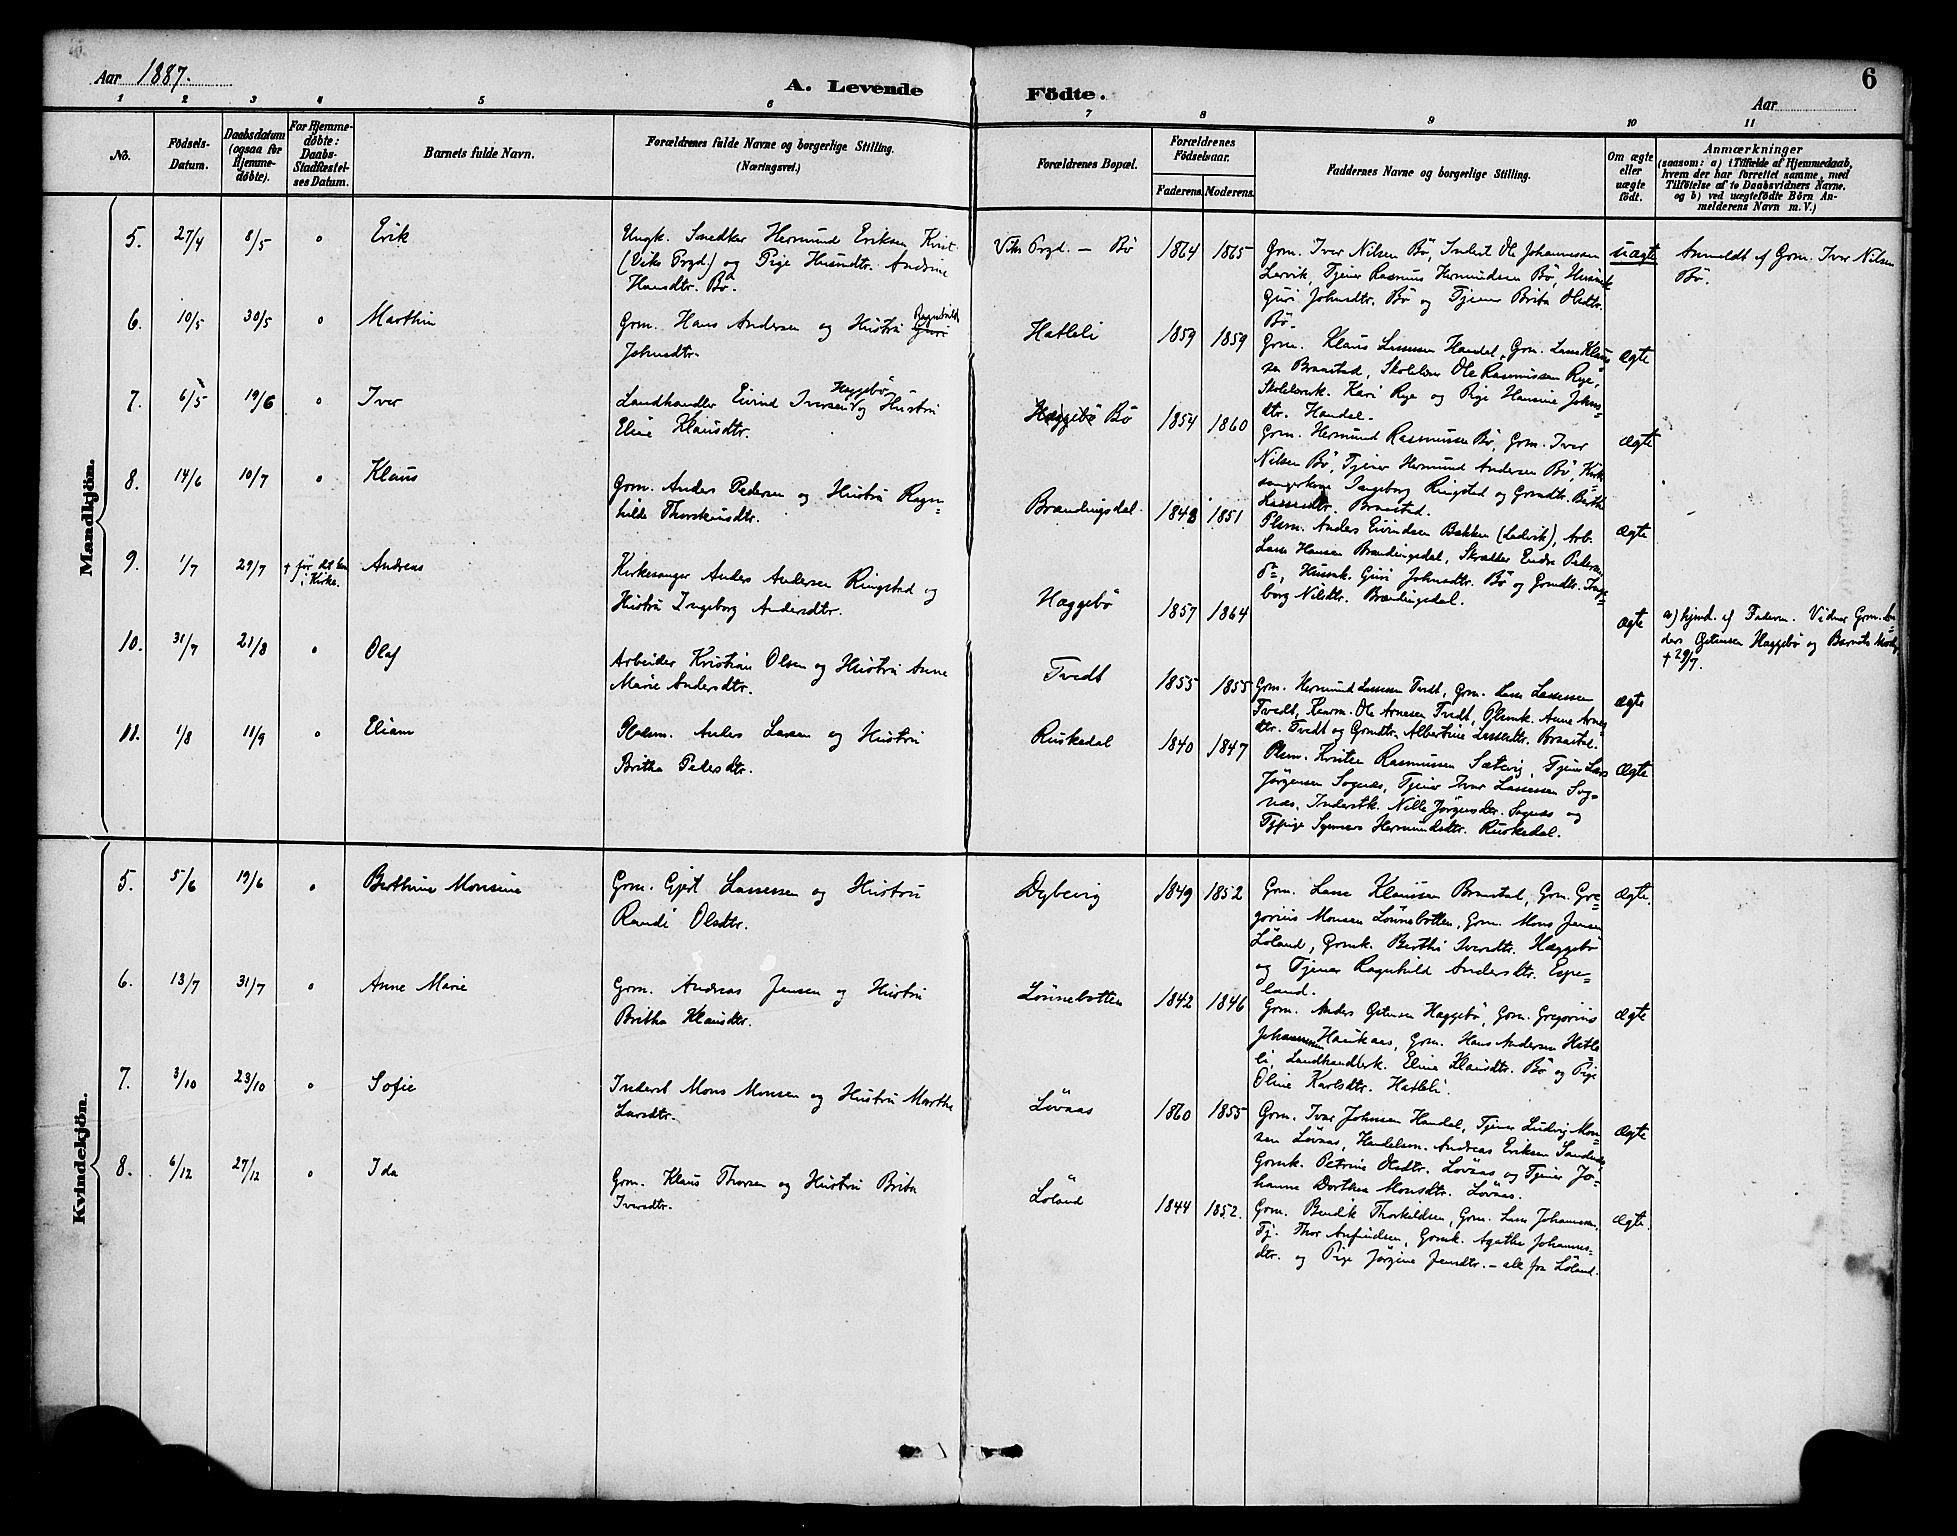 Aar 1887.
A. Levende Födte.
Aar
6
1 2 3 4 5 6 7 8 9 10 11
No.
Födsels-
Datum.
Daabsdatum
(ogsaa for
Hjemme-
döbte).
For Hjemme-
döbte:
Daabs-
Stadfæstel-
ses Datum.
Barnets fulde Navn.
Forældrenes fulde Navne og borgerlige Stilling.
(Næringsvei.)
Forældrenes Bopæl.
Forældrenes
Födselsaar.
Faderens. Moderens.
Faddernes Navne og borgerlige Stilling.
Om ægte
eller
uægte
födt.
Anmærkninger
(saasom: a) i Tilfælde af Hjemmedaab,
hvem der har forrettet samme, med
Tilföielse af to Daabsvidners Navne,
og b) ved uægtefödte Börn An-
melderens Navn m. V.)
Mandkjön.
5. 27/4 8/5 o Erik
Ungk. Snedker Hermund Eriksen Kvist
(Viks Prgd.) og Pige Husmdtr. Andrine
Hansdtr. Bö.
Viks Prgd. — Bö 1864 1865
Grm. Iver Nilsen Bö, Inderst Ole Johannessen
Lervik, Tjener Rasmus Hermundsen Bö, Husmk
Guri Johnsdtr. Bö og Tjener Brita Olsdtr.
Bö.
uægte
Anmeldt af Grm. Iver Nilsen
Bö.
6. 10/5 30/5 o Marthin
Grm. Hans Andersen og Hustru Ragnhild Guri
Johnsdtr.
Hatleli 1859 1859
Grm. Klaus Lassesen Handal, Grm. Lasse Klaus
sen Braastad, Skolelær. Ole Rasmussen Rye,
Skolelærerk. Kari Rye og Pige Hansine Johns-
dtr. Handal.
Ægte
7. 6/5 19/6 o Iver
Landhandler Eivind Iversen Hæggebö og Hustru
Eline Klausdtr.
Hæggebö Bö 1854 1860
Grm. Hermund Rasmussen Bö, Grm. Iver
Nilsen Bö, Tjener Hermund Andersen Bö, Kirke
sangerkone Ingeborg Ringstad og Grmdtr. Berthe
Lassesdtr. Braastad.
Ægte
8. 14/6 10/7 o Klaus
Grm. Anders Pedersen og Hustru Ragn=
hilde Thorsteinsdtr.
Brændingsdal 1848 1851
Plsm. Anders Eivindsen Bakken (Ladvik), Arb.
Lasse Hansen Brændingsdal, Skrædder Endre Pedersen
do, Husmk. Guri Johnsdtr. Bö og Grmdtr. Inge=
borg Nilsdtr. Brændingsdal.
Ægte
9. 1/7 29/7 † för det kom
i Kirke. Andreas
Kirkesanger Anders Andersen Ringstad og
Hustru Ingeborg Andersdtr.
Hæggebö 1857 1864
Ægte
a) hjmd. af Faderen. Vidner Grm. An=
ders Östensen Hæggebö og Barnets Moder
† 29/7.
10. 31/7 21/8 o Olaf
Arbeider Kristian Olsen og Hustru Anne
Marie Andersdtr.
Tvedt 1855 1855
Grm. Hermund Lassesen Tvedt, Grm. Lasse Lassesen
Tvedt, Kaarm. Ole Arnesen Tvedt, Plsmk. Anne Arnes
dtr. Tvedt og Grmdtr. Albertine Lassedtr. Braastad.
Ægte
11. 1/8 11/9 o Eliam
Pladsm. Anders Larsen og Hustru
Britha Pedersdtr.
Ruskedal 1840 1847
Plsm. Kristen Rasmussen Sætevig, Tjener Lars
Jörgensen Sognæs, Tjener Ivar Lassesen Sog=
næs, Inderstk. Nille Jörgensdtr. Sognæs og
Tjpige Synneve Hermundsdtr. Ruskedal.
Ægte
Kvindekjön.
5. 5/6 19/6 o Berthine Monsine
Grm. Gjert Lassesen og Hustru
Randi Olsdtr.
Dybevig 1849 1852
Grm. Lasse Klaussen Braastad, Grm. Gre=
gorius Monsen Lönnebotten, Grm. Mons Jensen
Löland, Grmk. Berthe Iversdtr. Hæggebö
og Tjener Ragnhild Andersdtr. Espe=
land.
Ægte.
6. 13/7 31/7 o Anne Marie
Grm. Andreas Jensen og Hustru
Britha Klausdtr.
Lönnebotten 1842 1846
Grm. Anders Östensen Hæggebö, Grm. Gregorius
Johannessen Haukaas, Grm. Hans Andersen Hatle
li Landhandlerk. Eline Klausdtr. Bö og Pige
Oline Karlsdtr. Hatleli.
Ægte
7. 3/10 23/10 o Sofie
Inderst Mons Monsen og Hustru Marthe
Larsdtr.
Lövaas 1860 1855
Grm. Ivar Johnsen Handal, Tjener Ludvig Mon=
sen Lövaas, Handelsm. Andreas Eriksen
Grmk. Petrine Olsdtr. Lövaas og Tjener Jo=
hanne Dorthea Monsdtr. Lövaas.
Ægte
8. 6/12 27/12 o Ida
Grm. Klaus Thorsen og Hustru Brita
Iversdtr.
Löland 1844 1852.
Grm. Bendik Thorkildsen, Grm. Lasse Johannessen,
Tj. Thor Anfindsen, Grmk. Agathe Johannes=
dtr. og Pige Jörgine Jensdtr. — alle fra Löland.
Ægte.